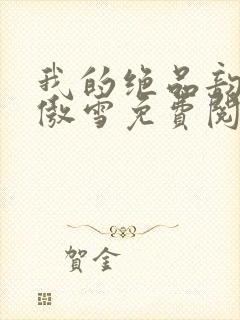 我的绝品
傲雪免费阅
贺金